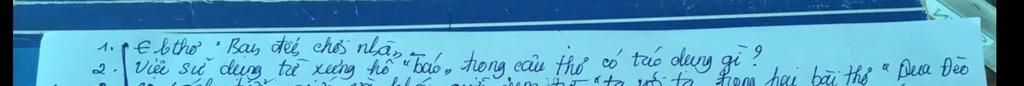 1. ∈ bthơ "Bạn đến chơi nhà"
2. Việc sử dụng từ xưng hô "bác" trong câu thơ có tác dụng gì?
"ta với ta" trong hai bài thơ "Qua Đèo